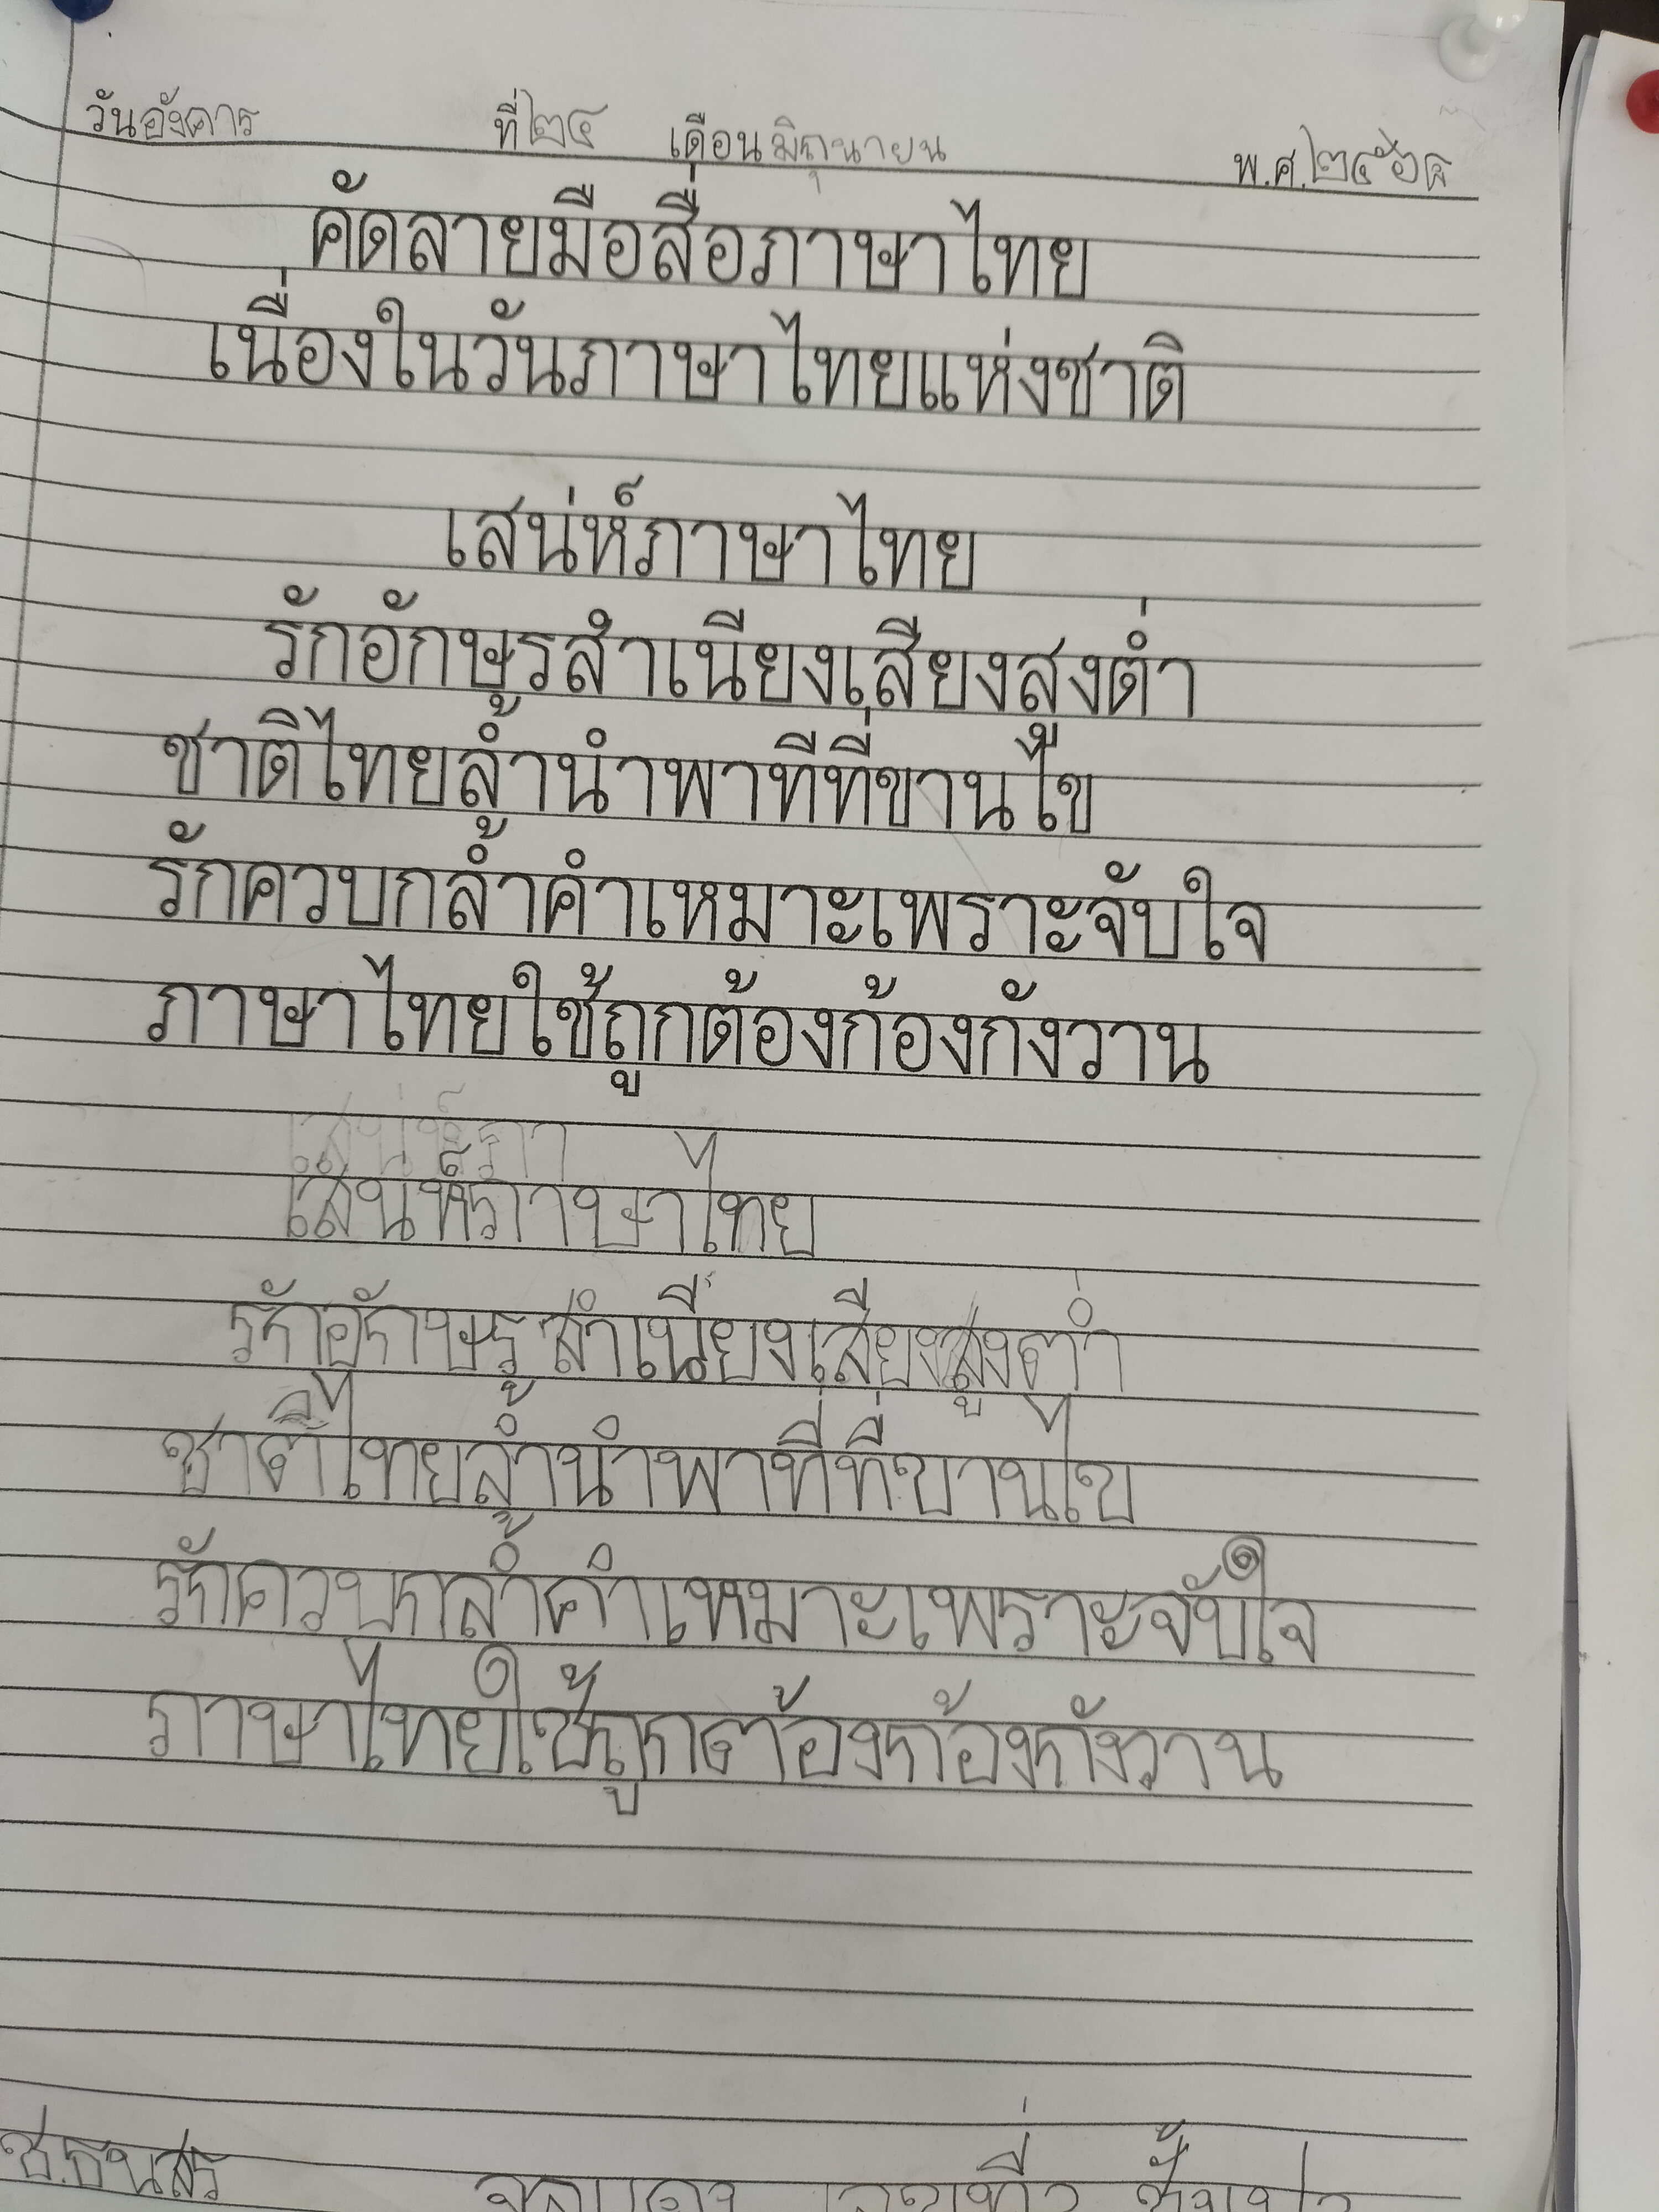 วันอังคาร ที่ ๒๔ เดือน มิถุนายน พ.ศ. ๒๕๖๘
คัดลายมือสื่อภาษาไทย
เนื่องในวันภาษาไทยแห่งชาติ
เสน่ห์ภาษาไทย
รักอักษรสำเนียงเสียงสูงต่ำ
ชาติไทยล้ำนำพาทีที่ขานไข
รักควบกล้ำคำเหมาะเพราะจับใจ
ภาษาไทยใช้ถูกต้องก้องกังวาน
เสน่ห์ภา
เสน่ห์ภาษาไทย
รักอักษร สำเนียงเสียงสูงต่ำ
ชาติไทยล้ำนำพาทีที่ขานไข
รักควบกล้ำคำเหมาะเพราะจับใจ
ภาษาไทยใช้ถูกต้องก้องกังวาน